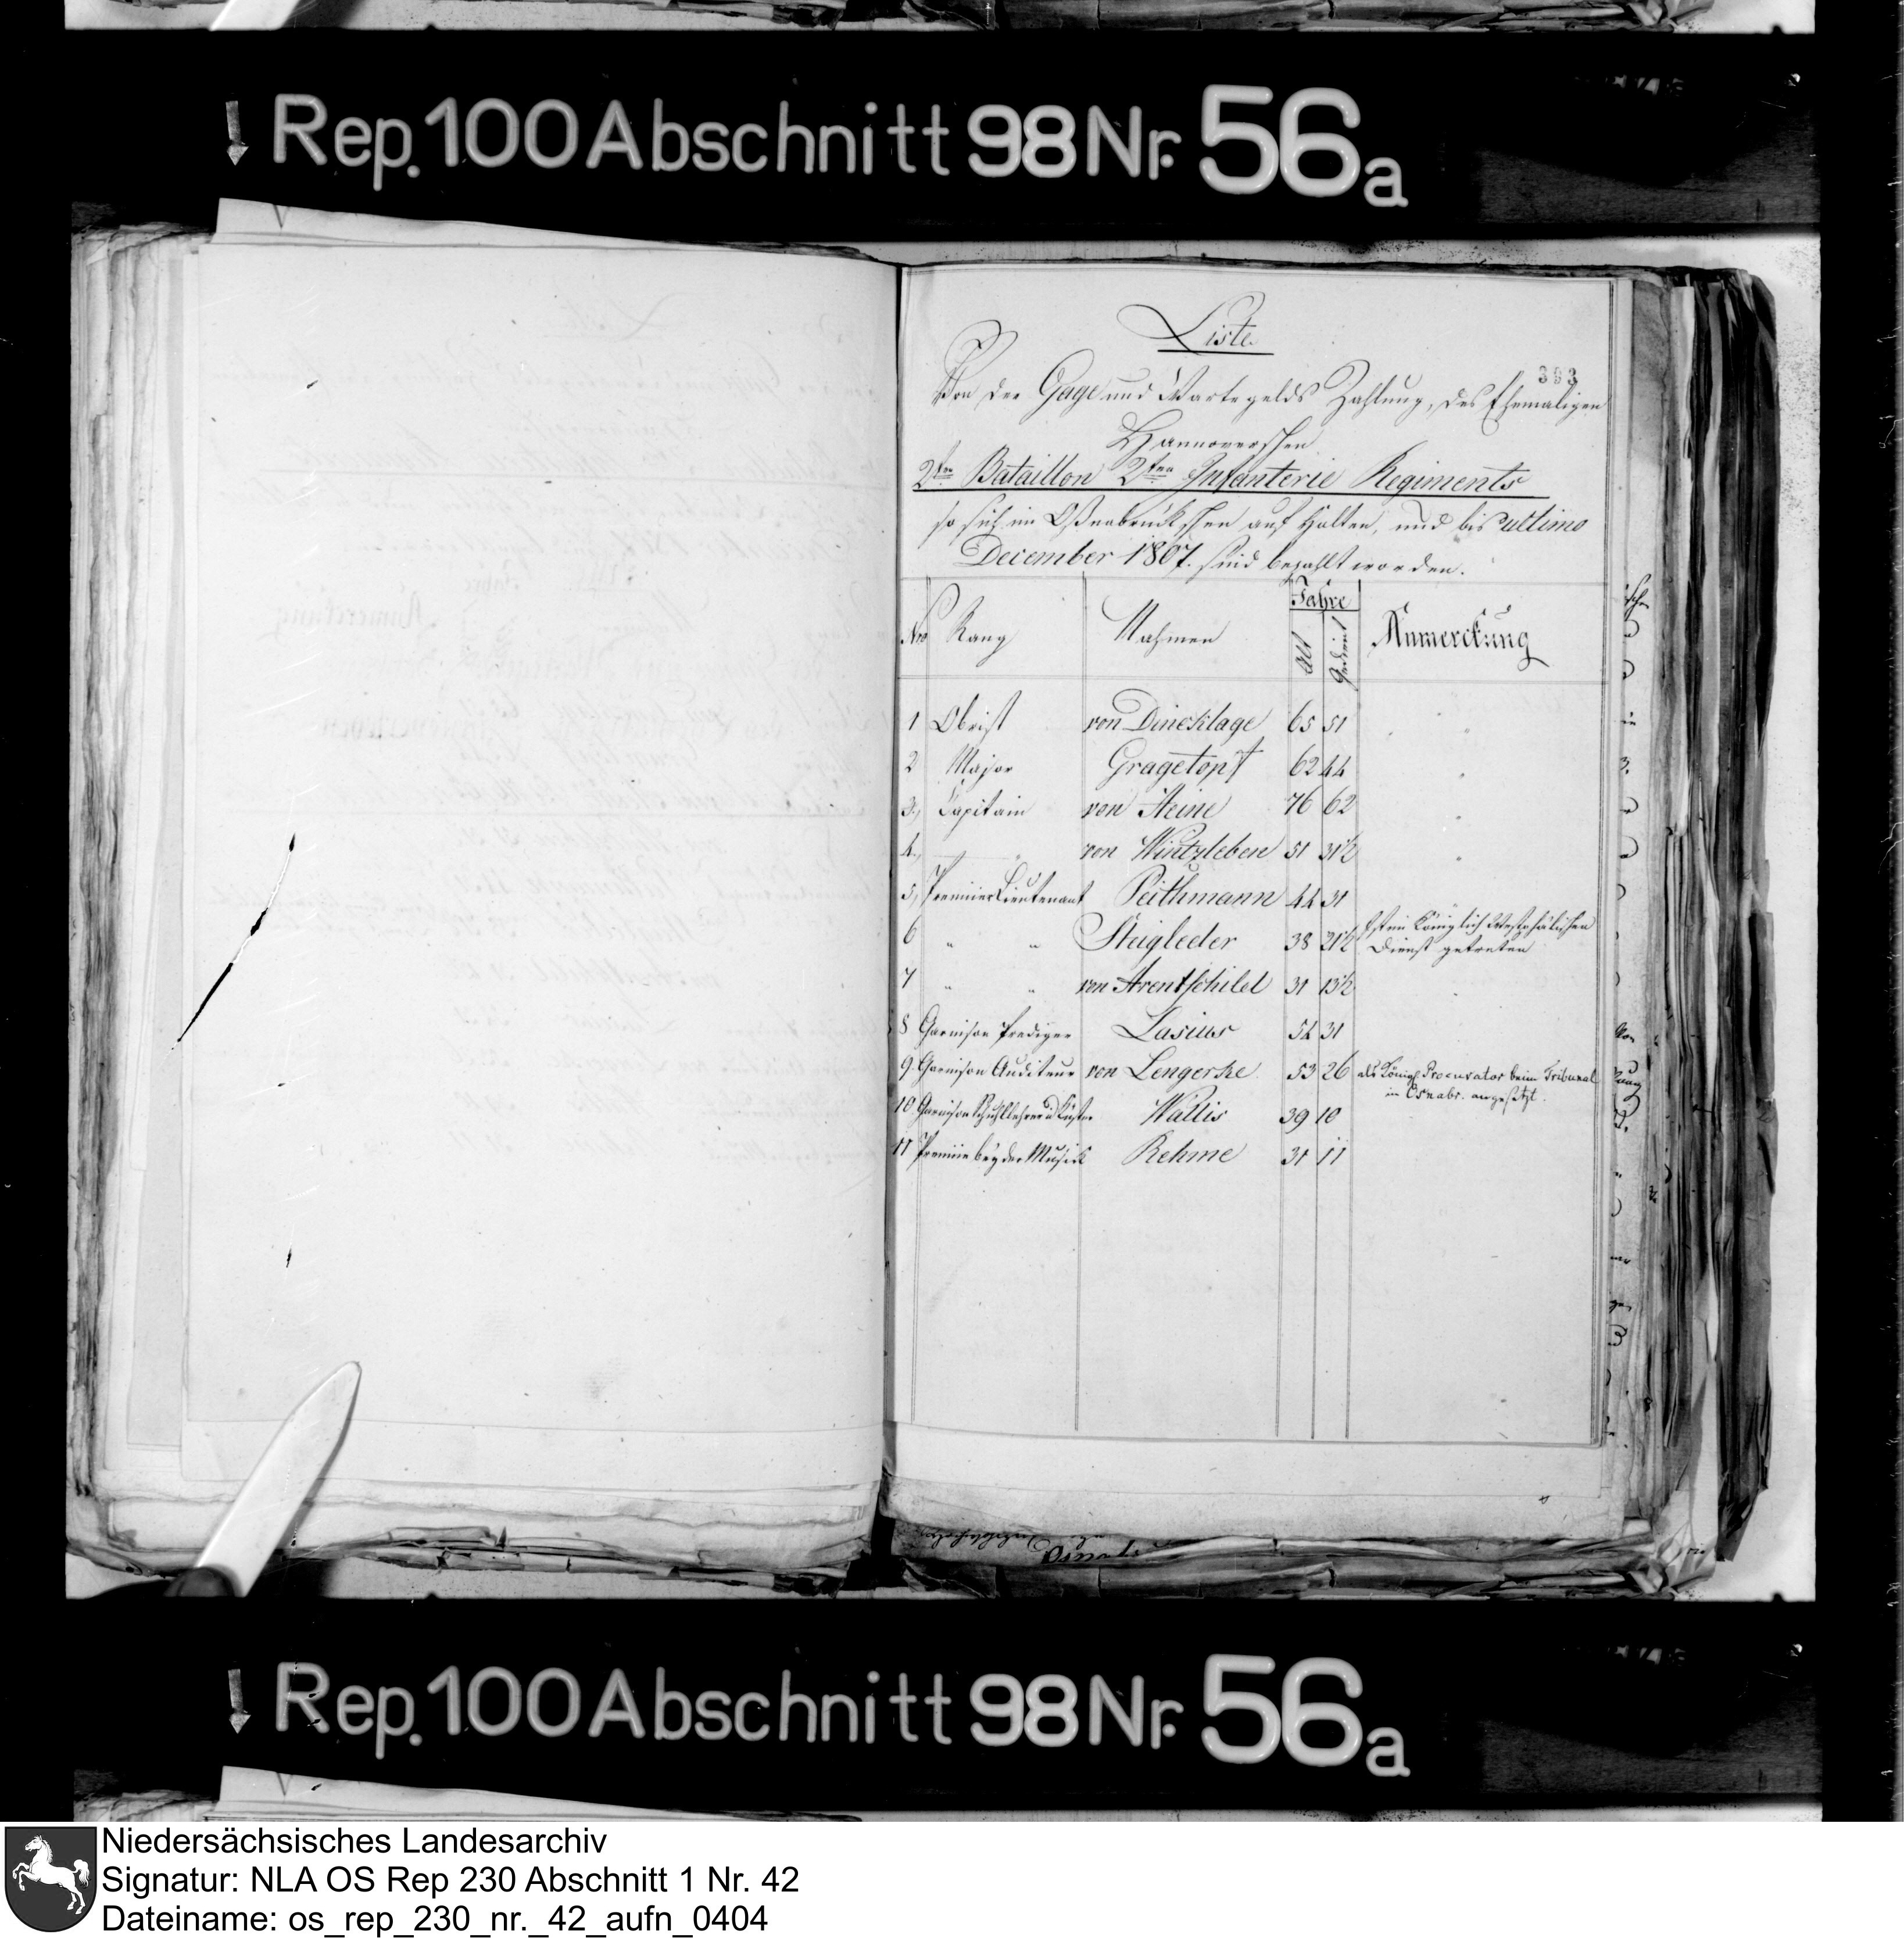 Rep. 100 Abschnitt 98 Nr. 56a
Liste
393
Von der Gage und Wartegelds Zahlung, des Ehemaligen
Hannoverschen
2ten Bataillon 2ten Infanterie Regiments
so sich im Oßnabrückschen auf halten, und bis ultimo
December 1807. sind bezahlt worden.
Nro Rang Nahmen Jahre Anmerckung
Alt Gedient
1 Obrist von Dincklage 65 51
2 Major Gragetopf 62 44
3, Capitain von Steine 76 62
4, " von Wintzleben 51 31½
5, Premier Lieutenant Peithmann 44 31
6 " " Steigleder 38 21½ Ist in Königlich Westphälischen
Dienst getreten
7 " " von Arentschild 31 13½
8 Garnison Prediger Lasius 54 31
9. Garnison Auditeur von Lengerke 53 26 als Königl. Procurator beim Tribunal
in Osnabr. angesetzt.
10 Garnison Schullehrer u Küster Wallis 39 10
11 Premier bey der Musick Rehme 31 11
Rep. 100 Abschnitt 98 Nr. 56a
Niedersächsisches Landesarchiv
Signatur: NLA OS Rep 230 Abschnitt 1 Nr. 42
Dateiname: os_rep_230_nr._42_aufn_0404